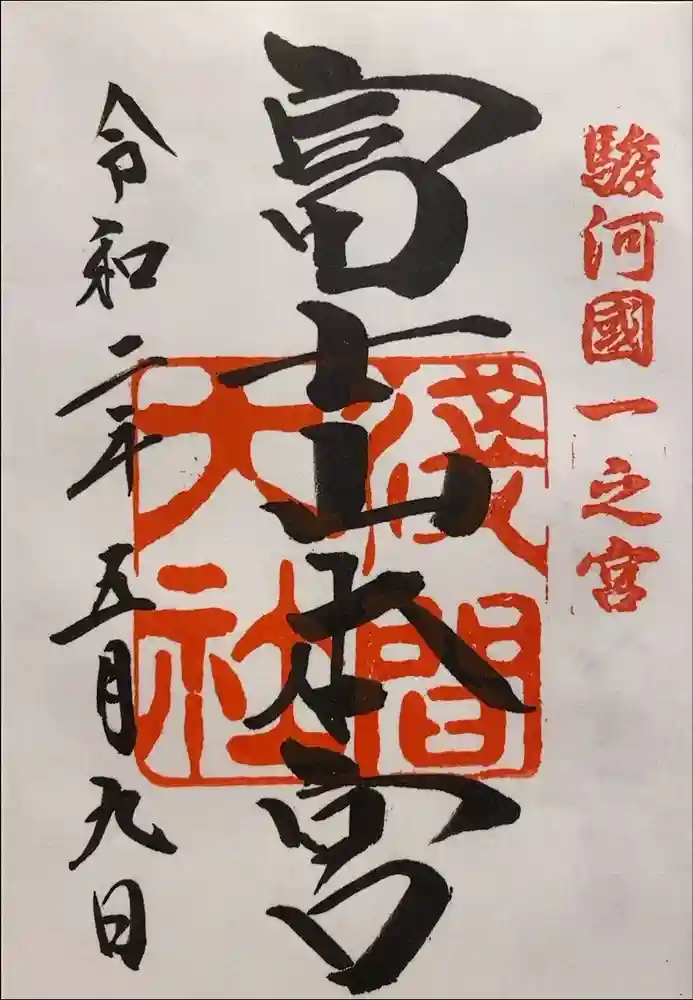 駿河國一之宮
富士山本宮
淺間大社
令和二年五月九日